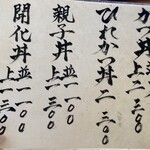 かつ丼
上一三〇〇
ひれかつ丼二三〇〇
親子丼並一一〇〇
上一三〇〇
開化丼並一一〇〇
上一三〇〇